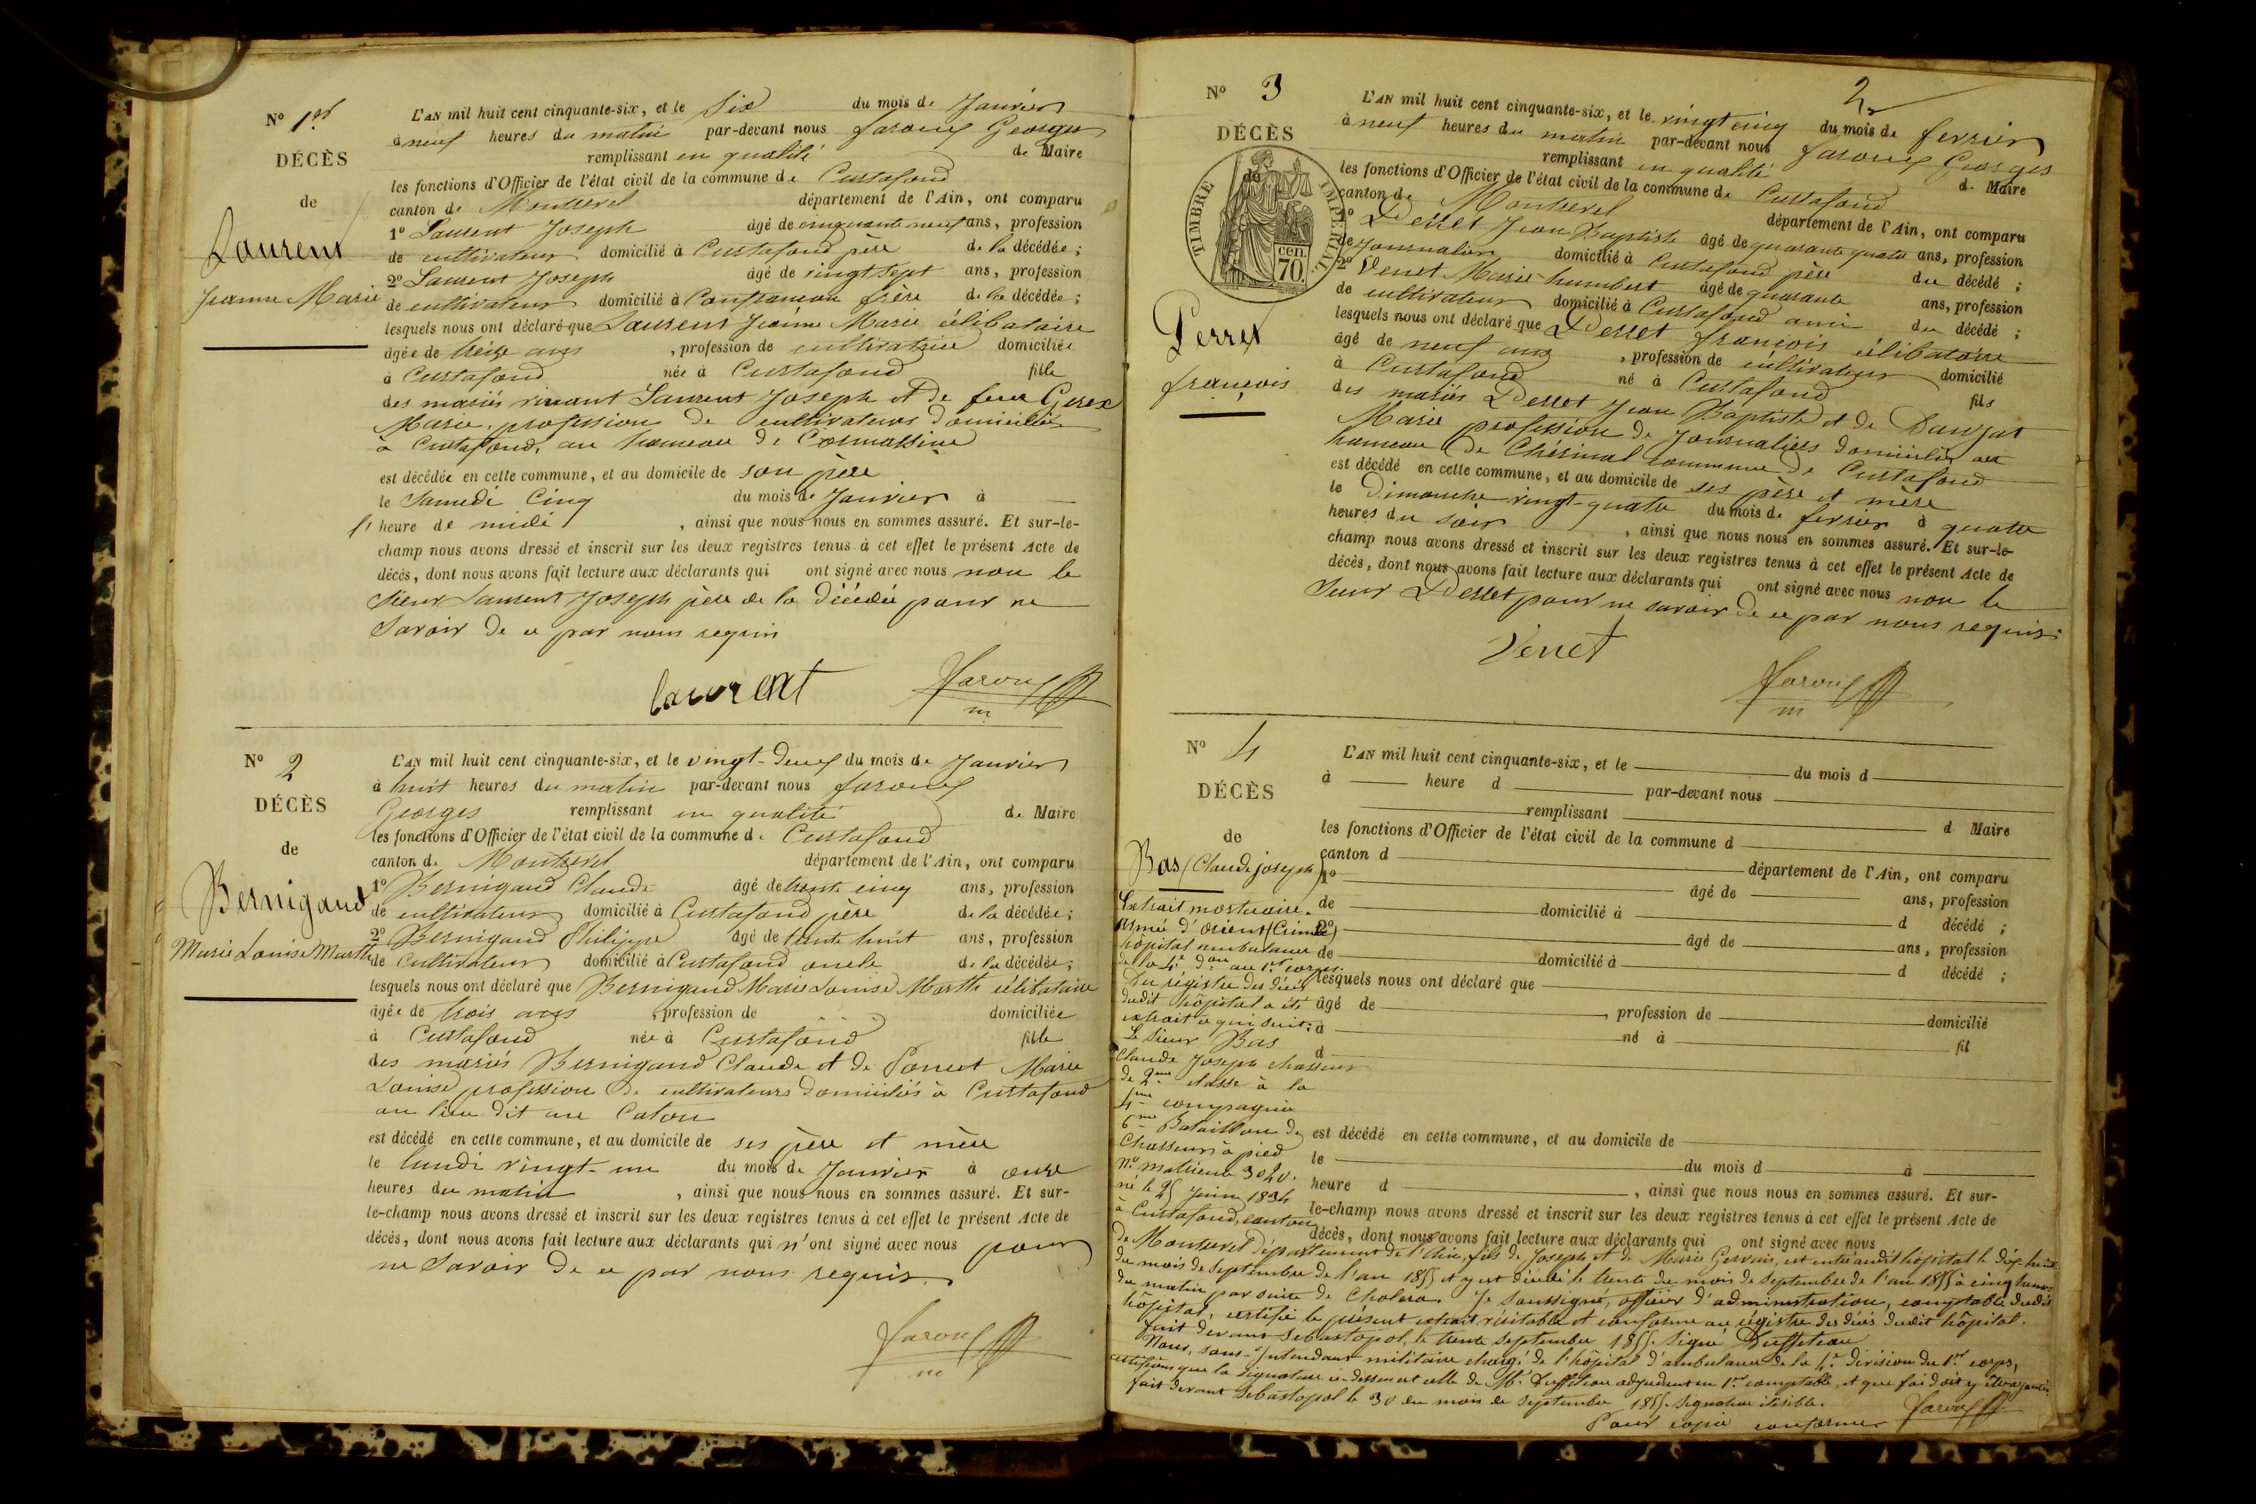 N° 1er
DÉCÈS
de
Laurent
Jeanne Marie
L'AN mil huit cent cinquante-six, et le Six du mois de Janvier
à neuf heures du matin par-devant nous Faroux Georges
remplissant en qualité de Maire
les fonctions d'Officier de l'état civil de la commune de Curtafond
canton de Montrevel département de l'Ain, ont comparu
1° Laurent Joseph âgé de cinquante neuf ans, profession
de cultivateur domicilié à Curtafond père de la décédée ;
2° Laurent Joseph âgé de vingt sept ans, profession
de cultivateur domicilié à Confrancon frère de la décédée ;
lesquels nous ont déclaré que Laurent Jeanne Marie célibataire
âgée de treize ans , profession de cultivatrice domiciliée
à Curtafond née à Curtafond fille
des mariés vivant Laurent Joseph et de feue Gerex
Marie, profession de cultivateurs domiciliés
à Curtafond, au hameau de Cormassine
est décédée en cette commune, et au domicile de son père
le Samedi Cinq du mois de Janvier à
l' heure de midi , ainsi que nous nous en sommes assuré. Et sur-le-
champ nous avons dressé et inscrit sur les deux registres tenus à cet effet le présent Acte de
décès, dont nous avons fait lecture aux déclarants qui ont signé avec nous non le
Sieur Laurent Joseph père de la décédée pour ne
Savoir de ce par nous requis
laurent Faroux
m
N° 2
DÉCÈS
de
Bernigaud
Marie Louise Marthe
L'AN mil huit cent cinquante-six, et le vingt-deux du mois de Janvier
à huit heures du matin par-devant nous Faroux
Georges remplissant en qualité de Maire
les fonctions d'Officier de l'état civil de la commune de Curtafond
canton de Montrevel département de l'Ain, ont comparu
1° Bernigaud Claude âgé de trente cinq ans, profession
de cultivateur domicilié à Curtafond père de la décédée ;
2° Bernigaud Philippe âgé de trente huit ans, profession
de Cultivateur domicilié à Curtafond oncle de la décédée ;
lesquels nous ont déclaré que Bernigaud Marie Louise Marthe célibataire
âgée de trois ans , profession de domiciliée
à Curtafond née à Curtafond fille
des mariés Bernigaud Claude et de Poncet Marie
Louise profession de cultivateurs domiciliés à Curtafond
au lieu dit au Caton
est décédé en cette commune, et au domicile de ses père et mère
le lundi vingt-un du mois de Janvier à onze
heures du matin , ainsi que nous nous en sommes assuré. Et sur-
le-champ nous avons dressé et inscrit sur les deux registres tenus à cet effet le présent Acte de
décès, dont nous avons fait lecture aux déclarants qui n'ont signé avec nous pour
ne Savoir de ce par nous requis.
Faroux
m
2
N° 3
DÉCÈS
de
TIMBRE IMPERIAL
70 cen.
Perret
françois
L'AN mil huit cent cinquante-six, et le vingt cinq du mois de fevrier
à neuf heures du matin par-devant nous Faroux Georges
remplissant en qualité de Maire
les fonctions d'Officier de l'état civil de la commune de Curtafond
canton de Montrevel département de l'Ain, ont comparu
1° Perret Jean Baptiste âgé de quarante quatre ans, profession
de Journalier domicilié à Curtafond père du décédé ;
2° Venet Marie-humbert âgé de quarante ans, profession
de cultivateur domicilié à Curtafond ami du décédé ;
lesquels nous ont déclaré que Perret françois célibataire
âgé de neuf ans , profession de cultivateur domicilié
à Curtafond né à Curtafond fils
des mariés Perret Jean Baptiste et de Danjat
Marie profession de Journaliers domiciliés au
hameau de Chésinal commune de Curtafond
est décédé en cette commune, et au domicile de ses père et mère
le Dimanche vingt-quatre du mois de fevrier à quatre
heures du soir , ainsi que nous nous en sommes assuré. Et sur-le-
champ nous avons dressé et inscrit sur les deux registres tenus à cet effet le présent Acte de
décès, dont nous avons fait lecture aux déclarants qui ont signé avec nous non le
Sieur Perret pour ne savoir de ce par nous requis.
Venet
Faroux
m
N° 4
DÉCÈS
de
Bas (Claude joseph)
L'AN mil huit cent cinquante-six, et le du mois d
à heure d par-devant nous
remplissant d Maire
les fonctions d'Officier de l'état civil de la commune d
canton d département de l'Ain, ont comparu
1° âgé de ans, profession
de domicilié à d décédé ;
2° âgé de ans, profession
de domicilié à d décédé ;
lesquels nous ont déclaré que
âgé de , profession de domicilié
à né à fil
d
est décédé en cette commune, et au domicile de
le du mois d à
heure d , ainsi que nous nous en sommes assuré. Et sur-
le-champ nous avons dressé et inscrit sur les deux registres tenus à cet effet le présent Acte de
décès, dont nous avons fait lecture aux déclarants qui ont signé avec nous
Extrait mortuaire.
Armée d'orient (Crimée)
hôpital ambulance
de la 4e don au 1er corps.
Du régistre des décès
dudit hôpital a été
extrait ce qui suit :
Le Sieur Bas
Claude Joseph chasseur
de 2me classe à la
4me compagnie
6me Bataillon de
Chasseurs à pied
n° matricule 3040.
né le 25 Juin 1834
à Curtafond, canton
de Montrevel Département de l'Ain, fils de Joseph et de Marie Gervais, est entré audit hôpital le dix huit
du mois de Septembre de l'an 1855 et y est décédé le trente du mois de Septembre de l'an 1855 à cinq heures
du matin par suite de Choléra. Je soussigné, officier d'administration, comptable dudit
hôpital, certifie le présent extrait véritable et conforme au régistre des décès dudit hôpital.
fait devant Sébastopol, le trente septembre 1855. Signé Duffiteau
Nous, sous-Intendant militaire chargé de l'hôpital d'ambulance de la 4e division du 1er corps,
certifions que la signature ci-dessus est celle de Mr Duffiteau adjudant en 1er comptable, et que foi doit y être ajoutée.
fait devant Sébastopol le 30 du mois de Septembre 1855. Signature illisible.
Pour copie conforme Faroux